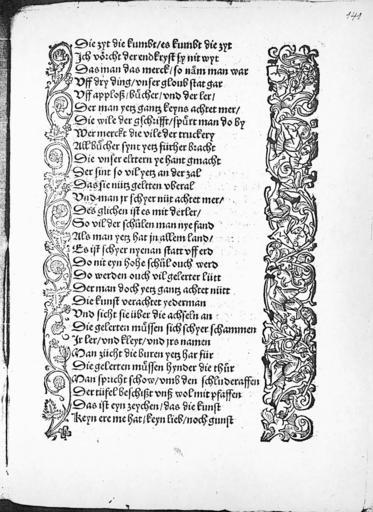 141
Die zyt die kumbt/es kumbt die zyt
Jch vörcht der endkryst sy nit wyt
Das man das merck/so näm man war
Vff dry ding/vnser gloub stat gar
Vff apploß/bücher/vnd der ler/
Der man yetz gantz keyns achtet mer/
Die wile der gschrifft/spürt man do by
Wer merckt die vile der truckery
All bücher synt yetz fürher bracht
Die vnser elttern ye hant gmacht
Der sint so vil yetz an der zal
Das sie nütz geltten vberal
Vnd man jr schyer nüt achtet mer/
Des glichen ist es mit der ler/
So vil der schülen man nye fand
Als man yetz hat jn allem land/
Es ist schyer nyenan statt vff erd
Do nit eyn hohe schül ouch werd
Do werden ouch vil gelerter lütt
Der man doch yetz gantz achtet nütt
Die kunst verachtet yederman
Vnd sicht sie über die achseln an
Die gelerten müssen sich schyer schammen
Jr ler/vnd kleyt/vnd jrs namen
Man zücht die buren yetz har für
Die gelerten müssen hynder die thür
Man spricht schow/vmb den schluderaffen
Der tüfel beschißt vnß wol mit pfaffen
Das ist eyn zeychen/das die kunst
Keyn ere me hat/keyn lieb/noch gunst